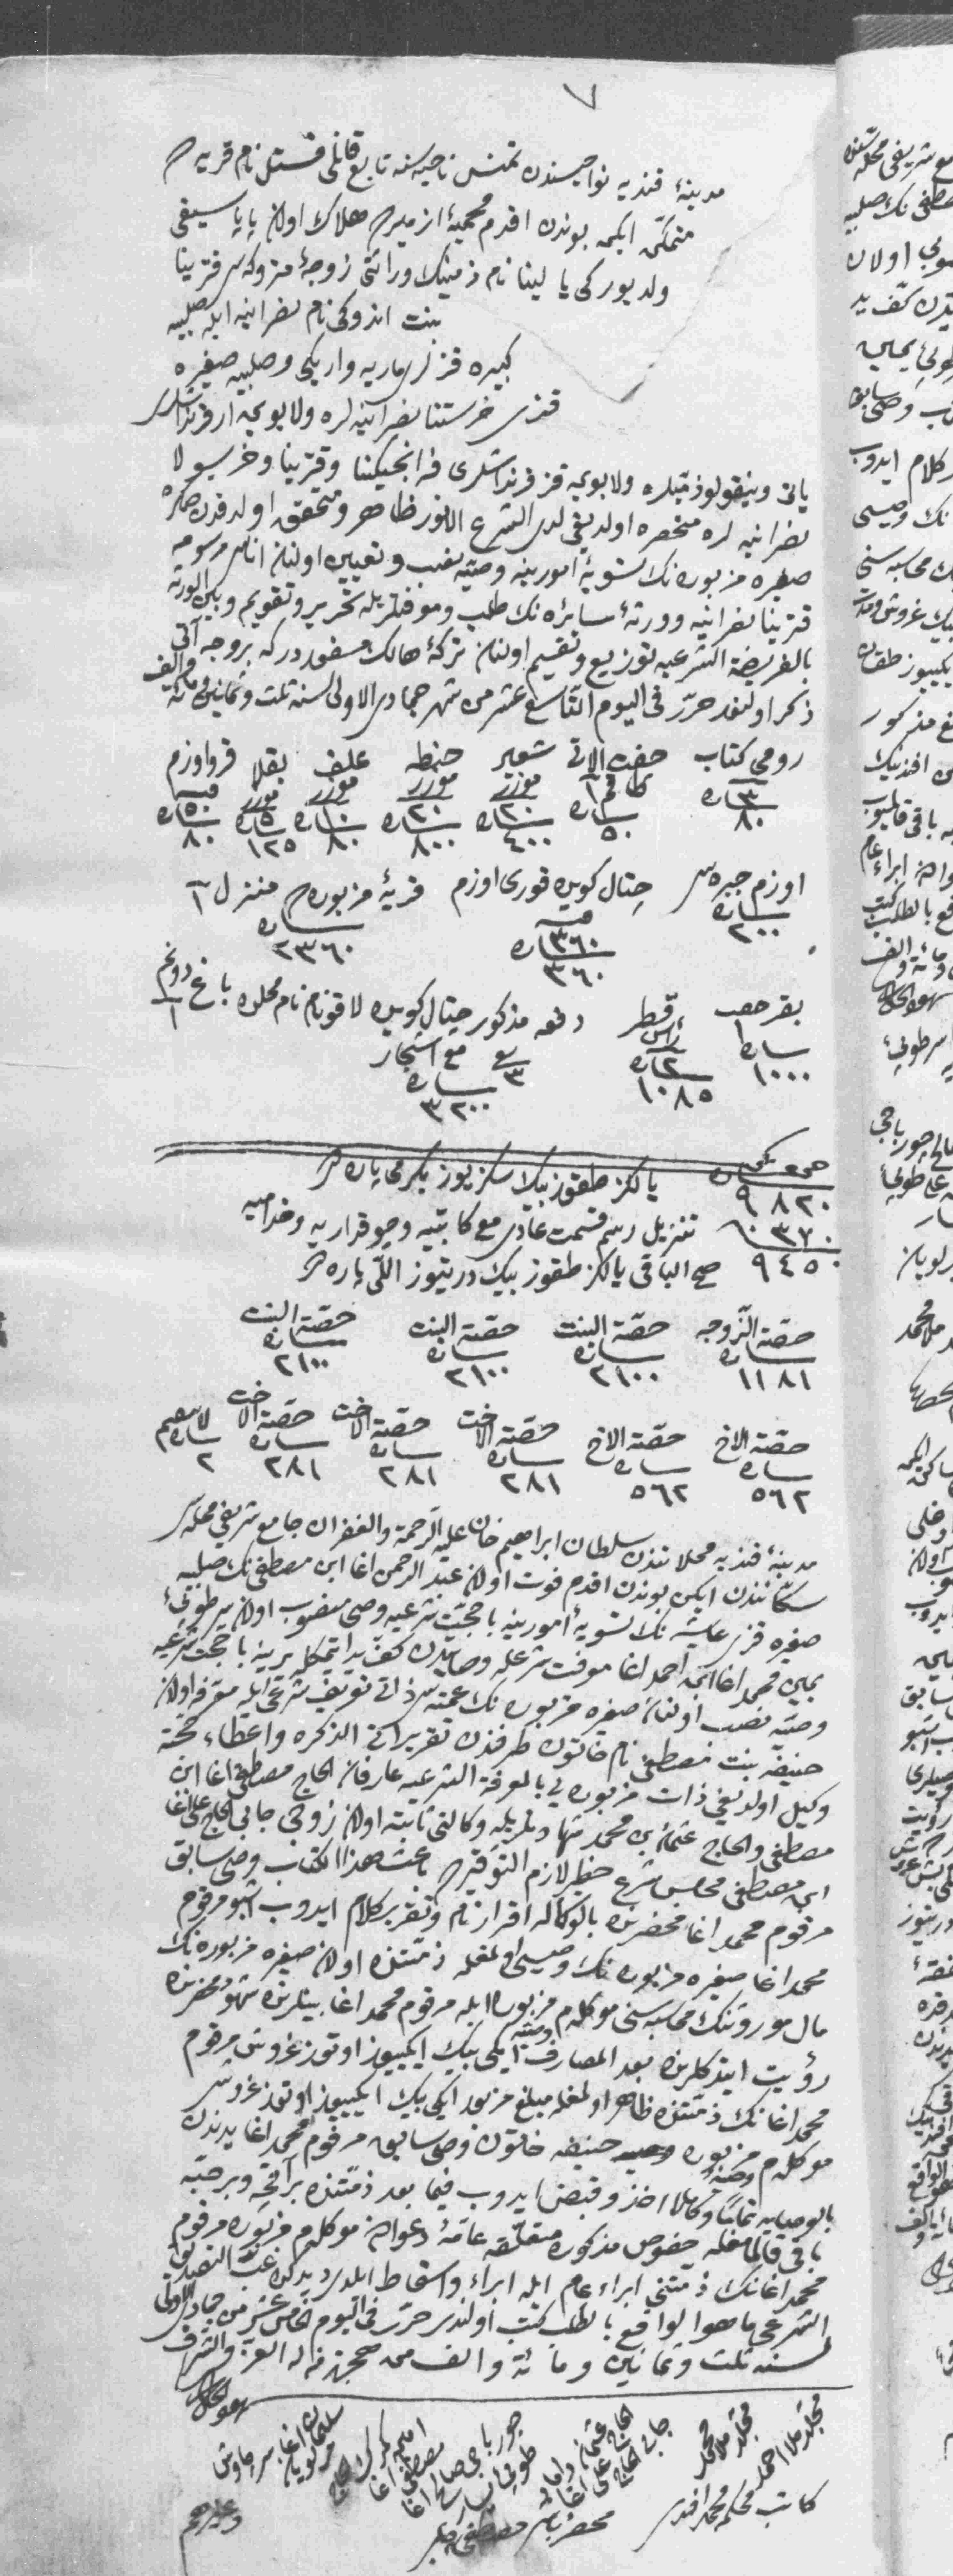 ٧
مدينهٔ قنديه نواحيسندن تمنس ناحيه سنه تابع قانلی قستل نام قريه ده
متمكن ايكن بوندن اقدم محميهٔ ازميرده هلاك اولان پاپا سيفی
ولد يوركی يا لينا نام ذمينك وراثتی زوجهٔ متروكه سی قترينا
بنت اندروكی نام نصرانيه ايله صلبيه
كبيره قزلری ماريه واريكی وصلبيه صغيره
قزی خرستنا نصرانيه لره ولابويه ار قرنداشلری
يانی ونيقولو ذميلره ولابويه قز قرنداشلری فرانجيسكنا وقترينا وخرسولا
نصرانيه لره منحصره اولديغی لدی الشرع الانور ظاهر ومتحقق اولدقدن صكره
صغيره مزبوره نك تسويهٔ امورينه وصيه نصب وتعيين اولنان اناسی مرسومه
قترينا نصرانيه وورثهٔ سائره نك طلب ومعرفتلريله تحرير وتقويم وبين الورثه
بالفريضة الشرعيه توزيع وتقسيم اولنان تركهٔ هالك مسفوردر كه بروجه آتی
ذكر اولنور حرر فی اليوم التاسع عشر من شهر جمادی الاولی لسنه ثلث وثمانين ومائه والف
رومی كتاب شعير حنطه علف بقلا قرواوزم
٨٠ ٥٠ ٤٠٠ ٨٠٠ ٨٠ ١٢٥ ٨٠
اوزم جبره سی حتال كوينده قوری اوزم قريهٔ مزبوره ده منزل ١
٢٠٠ ٣٦٠ ٢٣٦٠
بقر قطر دفعه مذكور حتال كوينده لاقونام نام محلده باغ دونم
رأس ٣ مع اشجار ١
١٠٠٠ ١٠٨٥ ٣٢٠٠
٩٨٢٠ يالكز طقوز بيك سكز يوز يكرمی پاره در
٠٣٧٠ تنزيل رسم قسمت عادی مع كاتبيه وچوقداريه وخداميه
٩٤٥٠ صح الباقی يالكز طقوز بيك درتيوز اللی پاره در
حصة الزوجه حصة البنت حصة البنت حصة البنت
١١٨١ ٢١٠٠ ٢١٠٠ ٢١٠٠
حصة الاخ حصة الاخ حصة الاخت حصة الاخت حصة الاخت لا ينقسم
٥٦٢ ٥٦٢ ٢٨١ ٢٨١ ٢٨١ ٢
مدينهٔ قنديه محلاتندن سلطان ابراهيم خان عليه الرحمة والغفران جامع شريفی محله سی
سكانندن ايكن بوندن اقدم فوت اولان عبد الرحمن اغا ابن مصطفی نك صلبيه
صغيره قزی عايشه نك تسويهٔ امورينه با حجت شرعيه وصی منصوب اولان سر طوپیٔ
يمين محمد اغا ابن احمد اغا موقت شرعله وصايتدن كف يد ايتمكله يرينه با حجت شرعيه
وصيه نصب اولنان صغيره مزبوره نك عمه سی ذاتی تعريف شرعی ايله معرفه اولان
حنيفه بنت مصطفی نام خاتون طرفندن تقرير آتی الذكره واعطاء حجته
وكيل اولديغی ذات مزبوره يی بالمعرفة الشرعيه عارفان الحاج مصطفی اغا ابن
مصطفی والحاج عثمان بن محمد شهادتلريله وكالتی ثابته اولان زوجی جابی الحاج علی اغا
ابن مصطفی مجلس شرع خطير لازم التوقيرده باعث هذا الكتاب وصی سابق
مرقوم محمد اغا محضرنده بالوكاله اقرار تام وتقرير كلام ايدوب اشبو مرقوم
محمد اغا صغيره مزبوره نك وصيسی اولمغله ذمتنده اولان صغيره مزبوره نك
مال موروثنك محاسبه سنی موكلم مزبوره ايله مرقوم محمد اغا بينلرنده
رؤيت ايتدكلرنده بعد المصارف ايكی بيك ايكيوز اوتوز غروش مرقوم
محمد اغانك ذمتنده ظاهر اولمغله مبلغ مزبور ايكی بيك ايكيوز اوتوز غروشی
موكلم مزبوره وصيه حنيفه خاتون وصی سابق مرقوم محمد اغا يدندن
بالوصايه تماماً وكاملاً اخذ وقبض ايدوب فيما بعد ذمتنده بر آقچه وبر حبه
باقی قالمامغله خصوص مذكوره متعلقه عامهٔ دعوادن موكلم مزبوره مرقوم
محمد اغانك ذمتنی ابراء عام ايله ابراء واسقاط ايلدی ديدكده غب التصديق
الشرعی ما هو الواقع بالطلب كتب اولندی حرر فی اليوم الخامس عشر من جمادی الاولی
لسنه ثلث وثمانين ومائة والف من هجرة من له العز والشرف
شهود الحال
مجلد ملا احمد
مجلد ملا محمد
كاتب محكمه محمد افندی
محضر باشی مصطفی چلبی
وغيرهم